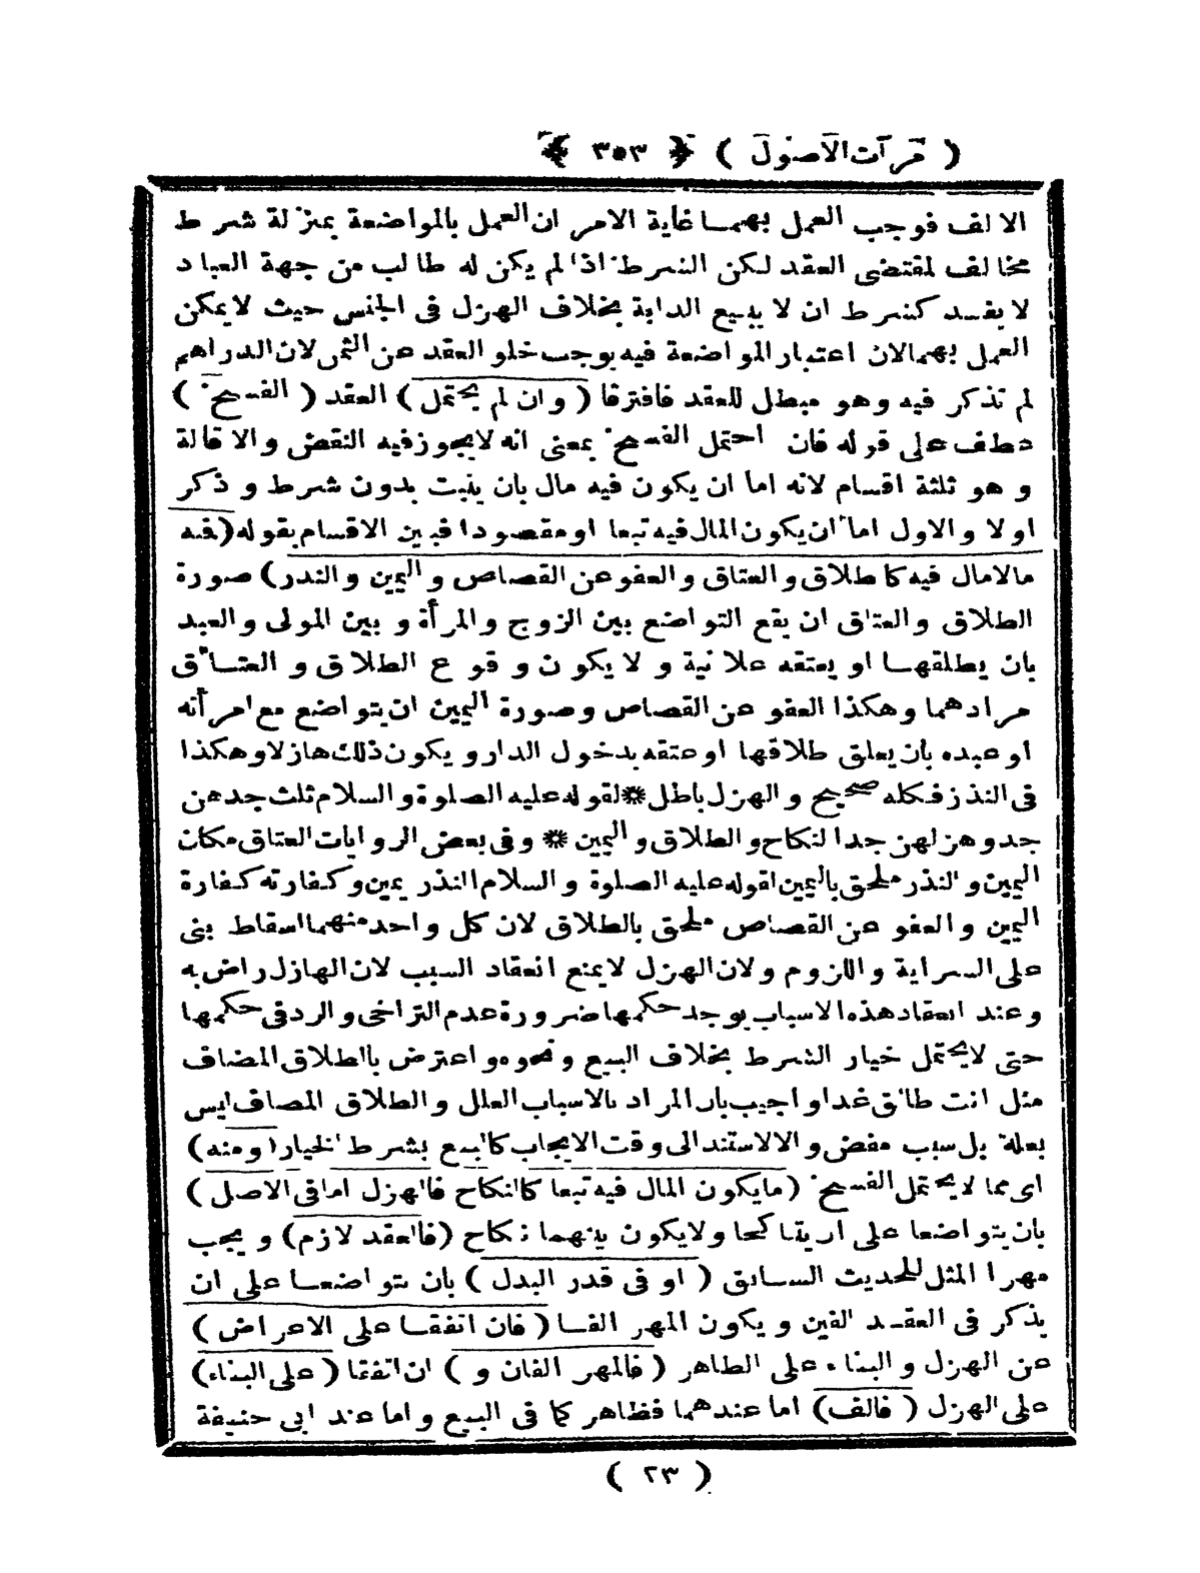 ( مرآت الاصول ) ﴿ ٣٥٣ ﴾
الالف فوجب العمل بهما غاية الامر ان العمل بالمواضعة بمنزلة شرط
مخالف لمقتضى العقد لكن الشرط اذا لم يكن له طالب من جهة العباد
لا يفسد كشرط ان لا يبيع الدابة بخلاف الهزل فى الجنس حيث لا يمكن
العمل بهما لان اعتبار المواضعة فيه يوجب خلو العقد عن الثمن لان الدراهم
لم تذكر فيه وهو مبطل للعقد فافترقا ( وان لم يحتمل ) العقد ( الفسخ )
عطف على قوله فان احتمل الفسخ بمعنى انه لا يجوز فيه النقض والاقالة
وهو ثلثة اقسام لانه اما ان يكون فيه مال بان يثبت بدون شرط وذكر
اولا والاول اما ان يكون المال فيه تبعا او مقصودا فبين الاقسام بقوله ( فمنه
مالا مال فيه كالطلاق والعتاق والعفو عن القصاص واليمين والنذر ) صورة
الطلاق والعتاق ان يقع التواضع بين الزوج والمرأة وبين المولى والعبد
بان يطلقها او يعتقه علانية ولا يكون وقوع الطلاق والعتاق
مرادهما وهكذا العفو عن القصاص وصورة اليمين ان يتواضع مع امرأته
او عبده بان يعلق طلاقها او عتقه بدخول الدار ويكون ذلك هازلا وهكذا
فى النذر فكله صحيح والهزل باطل * لقوله عليه الصلوة والسلام ثلث جدهن
جد وهزلهن جد النكاح والطلاق واليمين * وفى بعض الروايات العتاق مكان
اليمين والنذر ملحق باليمين لقوله عليه الصلوة والسلام النذر يمين وكفارته كفارة
اليمين والعفو عن القصاص ملحق بالطلاق لان كل واحد منهما اسقاط بنى
على السراية واللزوم ولان الهزل لا يمنع انعقاد السبب لان الهازل راض به
وعند انعقاد هذه الاسباب يوجد حكمها ضرورة عدم التراخى والرد فى حكمها
حتى لا يحتمل خيار الشرط بخلاف البيع ونحوه واعترض بالطلاق المضاف
مثل انت طالق غدا واجيب بان المراد بالاسباب العلل والطلاق المضاف ليس
بعلة بل سبب مفض والا لاستند الى وقت الايجاب كالبيع بشرط الخيار ( ومنه )
اى مما لا يحتمل الفسخ ( ما يكون المال فيه تبعا كالنكاح فالهزل اما فى الاصل )
بان يتواضعا على ان يتناكحا ولا يكون بينهما نكاح ( فالعقد لازم ) ويجب
مهر المثل للحديث السابق ( او فى قدر البدل ) بان يتواضعا على ان
يذكر فى العقد الفين ويكون المهر الفا ( فان اتفقا على الاعراض )
عن الهزل والبناء على الظاهر ( فالمهر الفان و ) ان اتفقا ( على البناء )
على الهزل ( فالف ) اما عندهما فظاهر كما فى البيع واما عند ابى حنيفة
( ٢٣ )